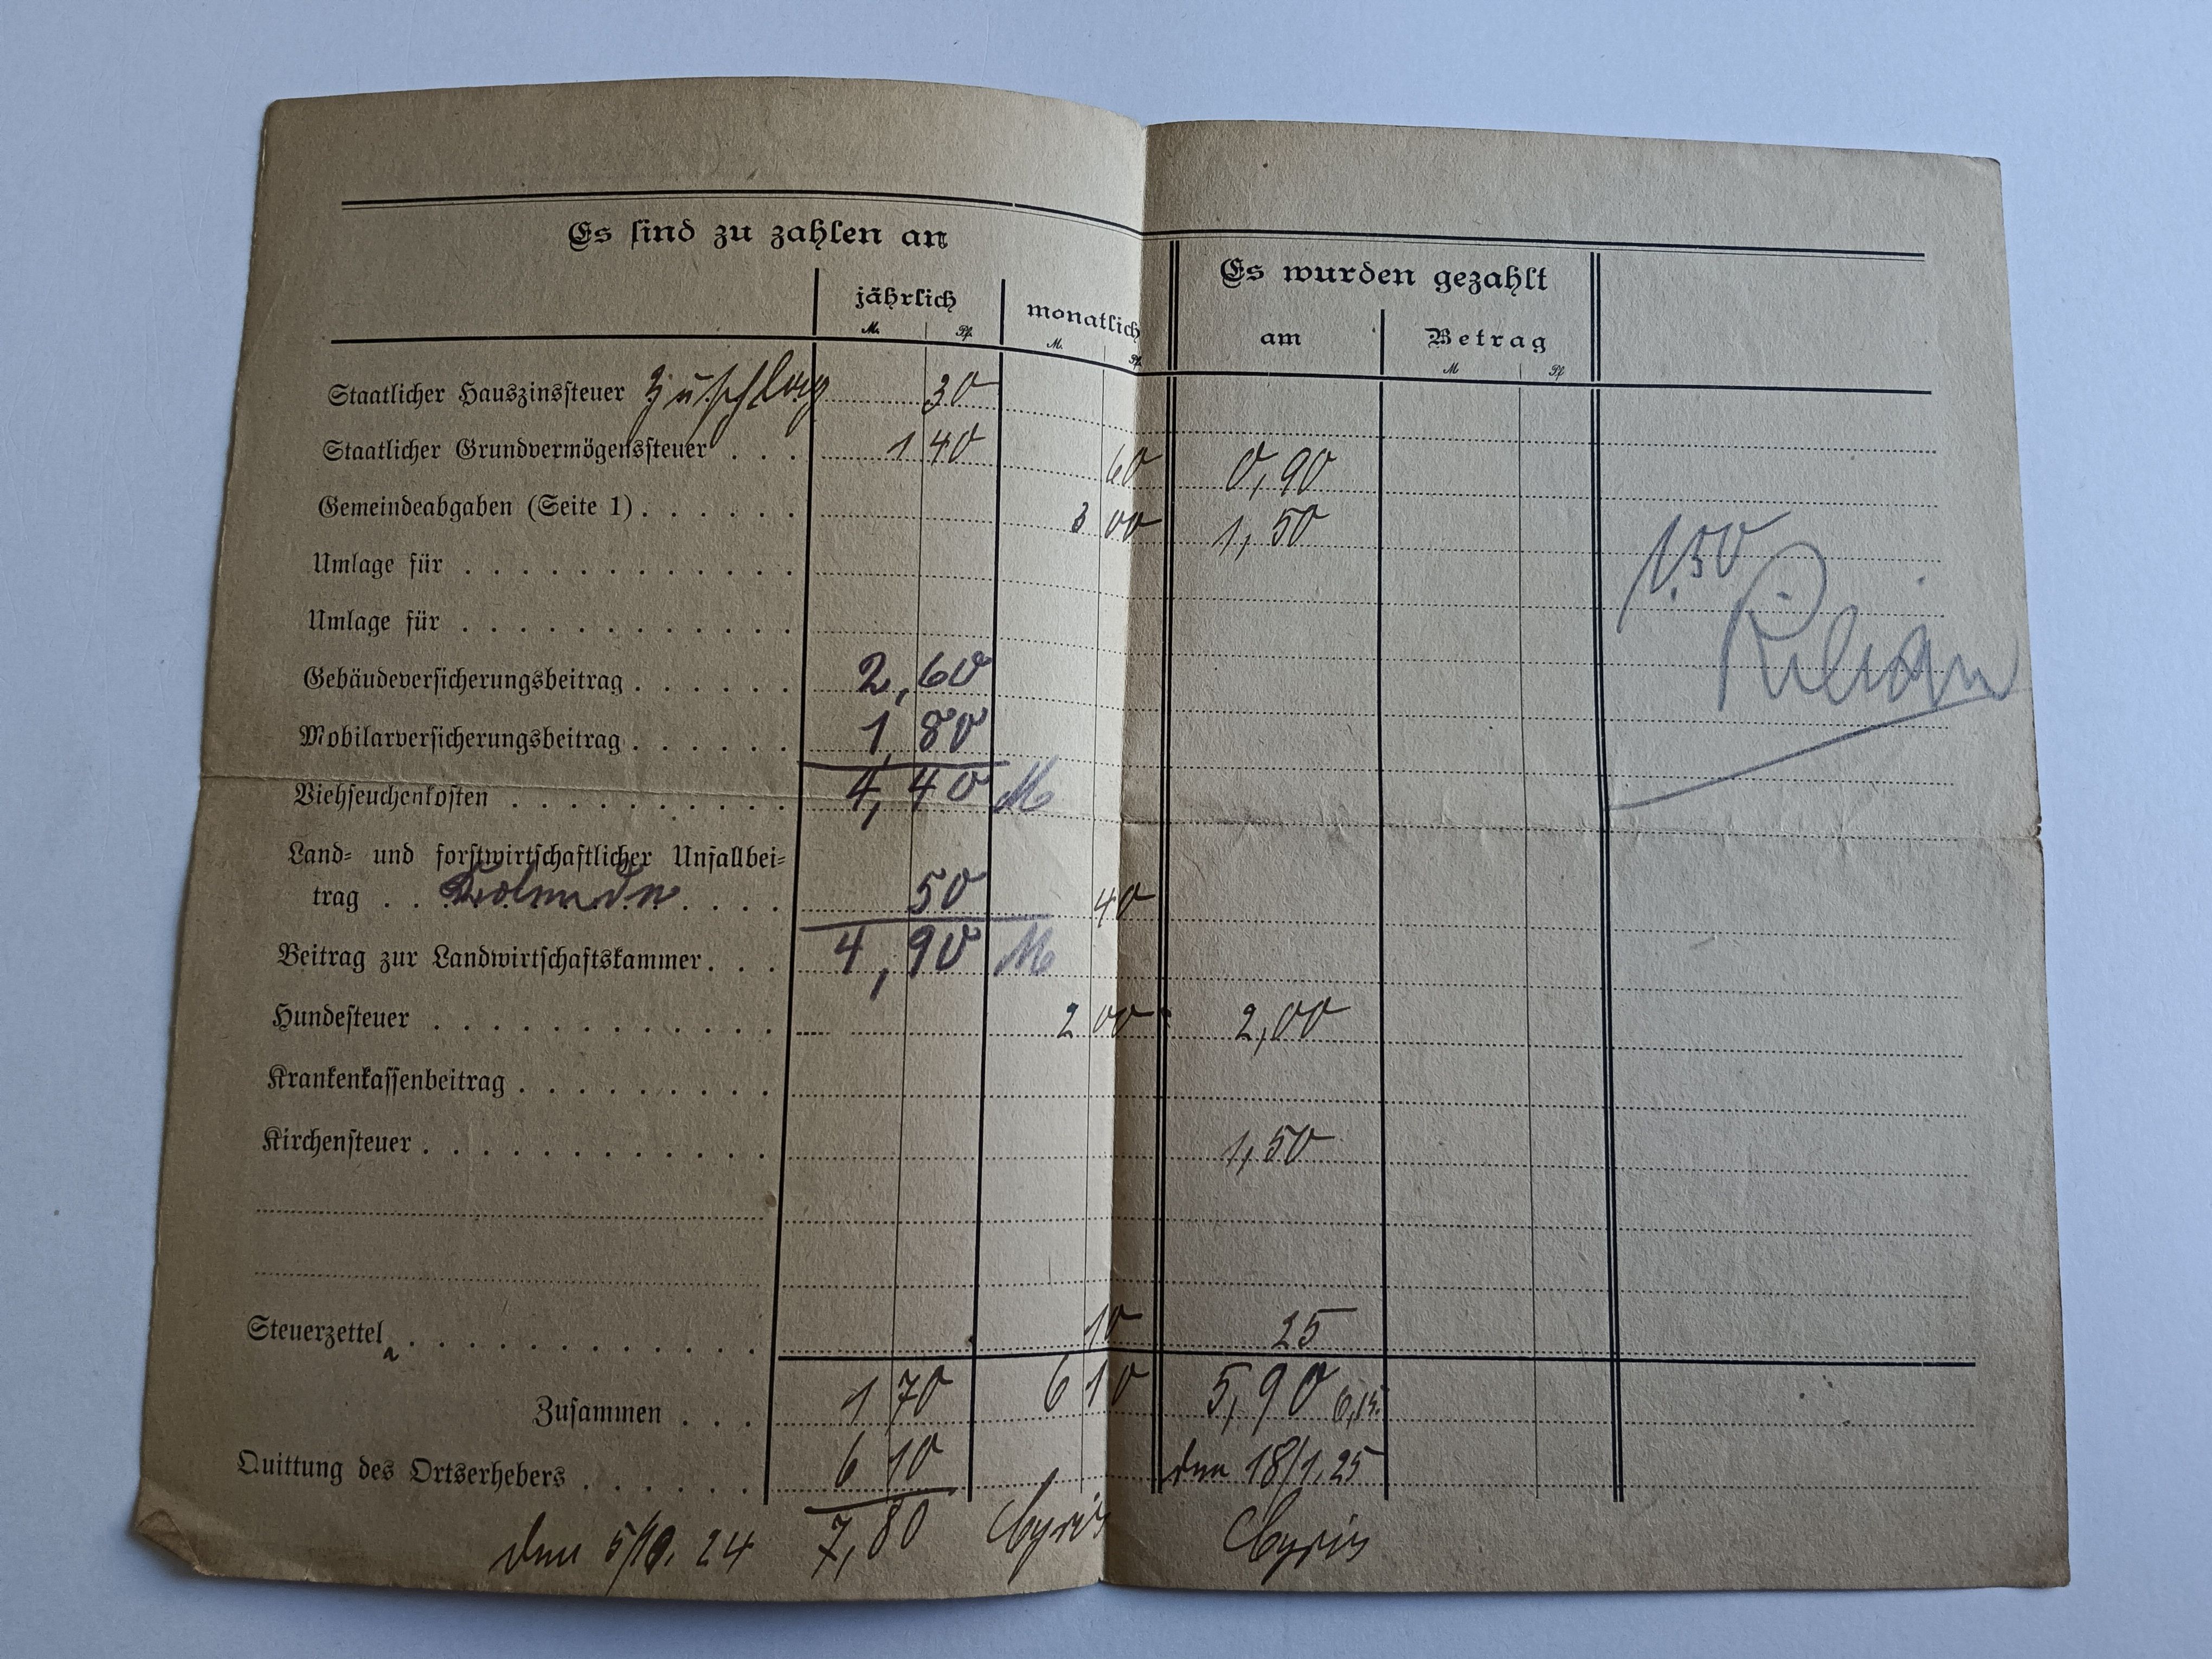 Es sind zu zahlen an
jährlich
M. Pf.
monatlich
M. Pf.
Es wurden gezahlt
am
Betrag
M Pf
Staatlicher Hauszinssteuer Zuschlag 30
Staatlicher Grundvermögenssteuer . . . 1 40 60 0,90
Gemeindeabgaben (Seite 1) . . . . . . 3 00 1,50
1,50
Umlage für . . . . . . . . . . . .
Umlage für . . . . . . . . . . . .
Gebäudeversicherungsbeitrag . . . . . . 2,60
Mobilarversicherungsbeitrag . . . . . . 1,80
Viehseuchenkosten . . . . . . . . . . 4,40 M
Land- und forstwirtschaftlicher Unfallbei-
trag . . . . . . 50 40
Beitrag zur Landwirtschaftskammer . . . 4,90 M
Hundesteuer . . . . . . . . . . . . 2 00 2,00
Krankenkassenbeitrag . . . . . . . . .
Kirchensteuer . . . . . . . . . . . . 1,50
Steuerzettel . . . . . . . . . . . . 10 25
Zusammen . . . 1 70 6 10 5,90 6,15
Quittung des Ortserhebers . . . . . . 6 10 den 18/1.25
den 5/10. 24 7,80